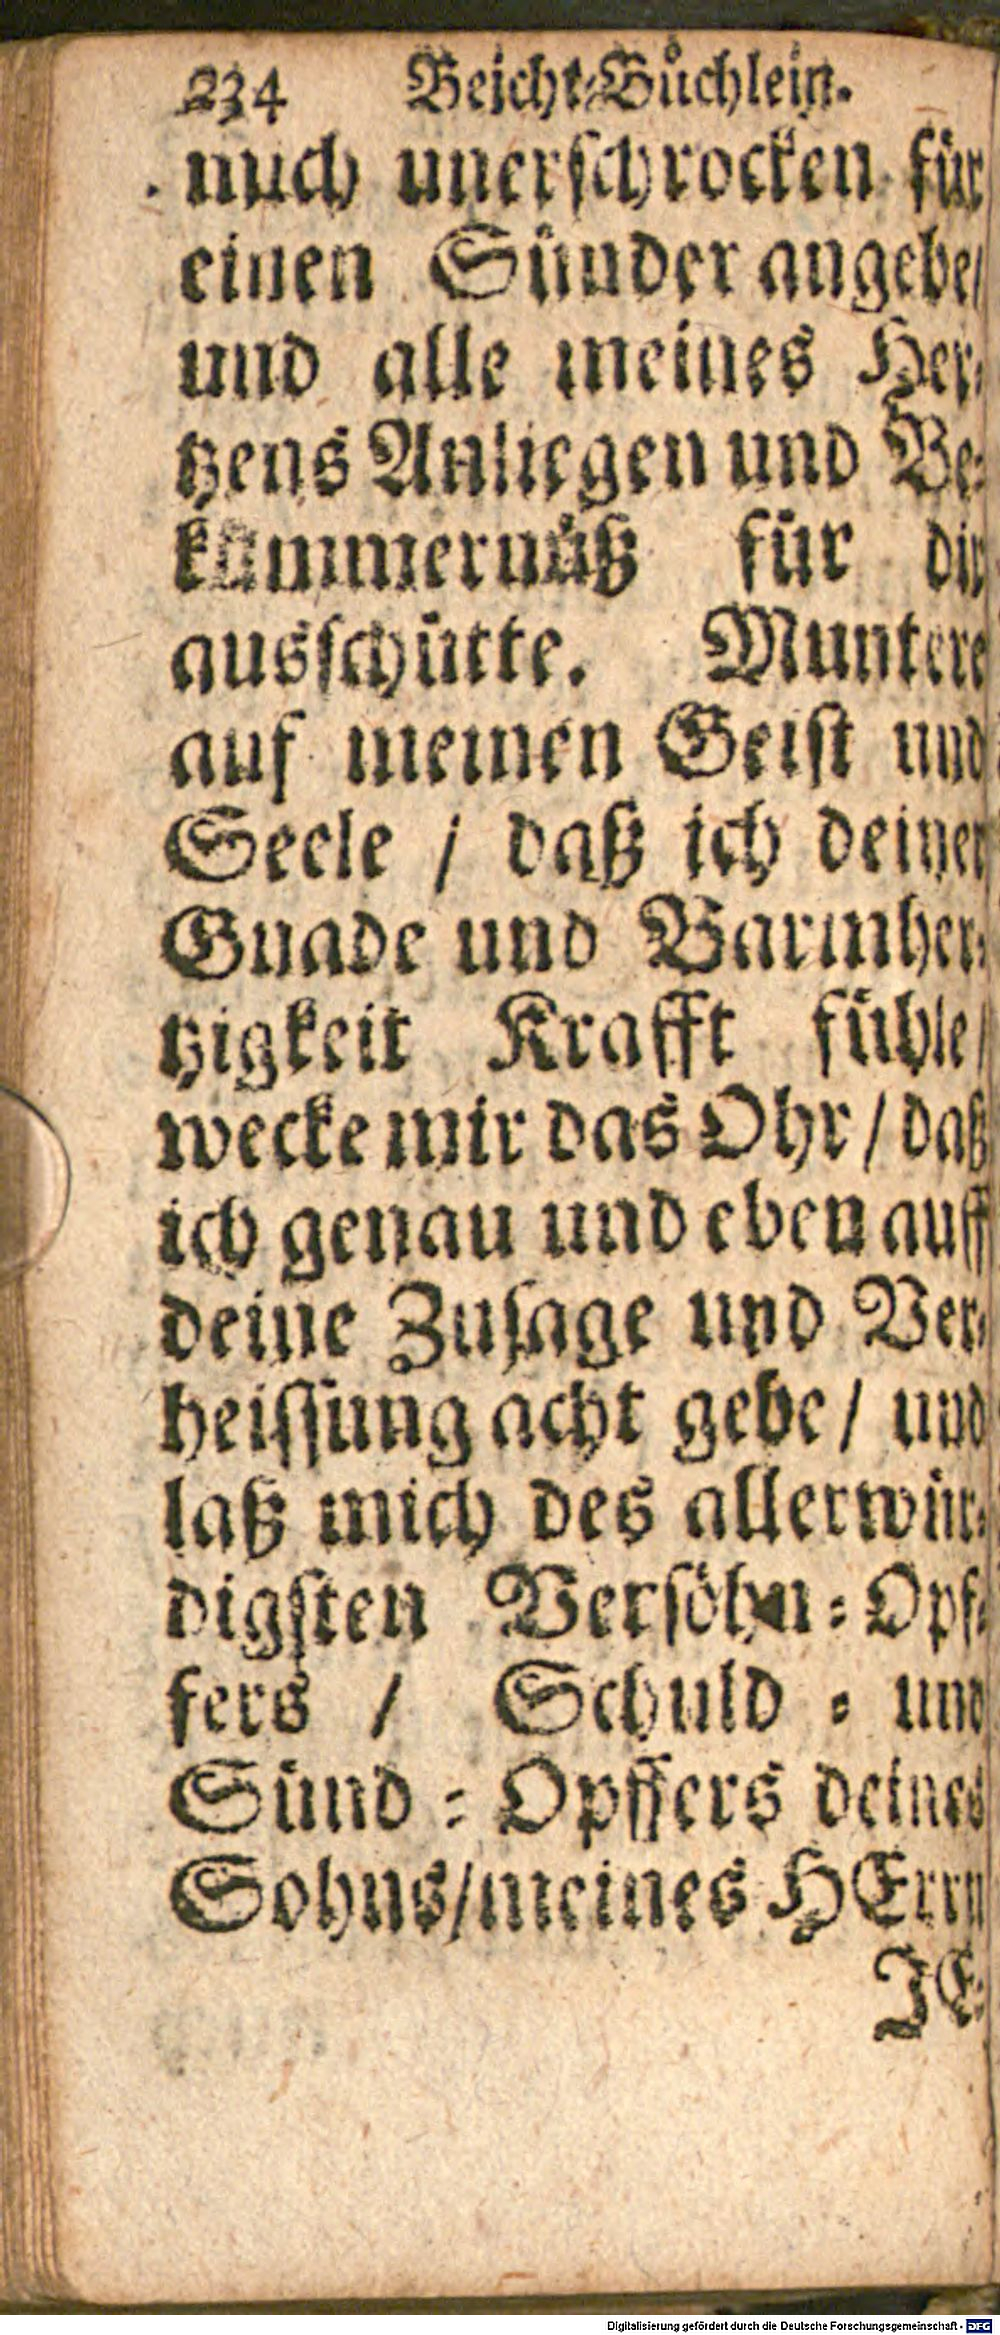 234 Beicht-Bůchlein.
mich unerschrocken für
einen Sünder angebe/
und alle meines Her-
tzens Anliegen und Be-
kümmernůß für dir
ausschütte. Muntere
auf meinen Geist und
Seele / daß ich deiner
Gnade und Barmher-
tzigkeit Krafft fühle/
wecke mir das Ohr / daß
ich genau und eben auff
deine Zusage und Ver-
heissung acht gebe / und
laß mich des allerwür-
digsten Versöhn-Opf-
fers / Schuld- und
Sünd-Opffers deines
Sohns/meines HErrn
JE-
Digitalisierung gefördert durch die Deutsche Forschungsgemeinschaft - DFG